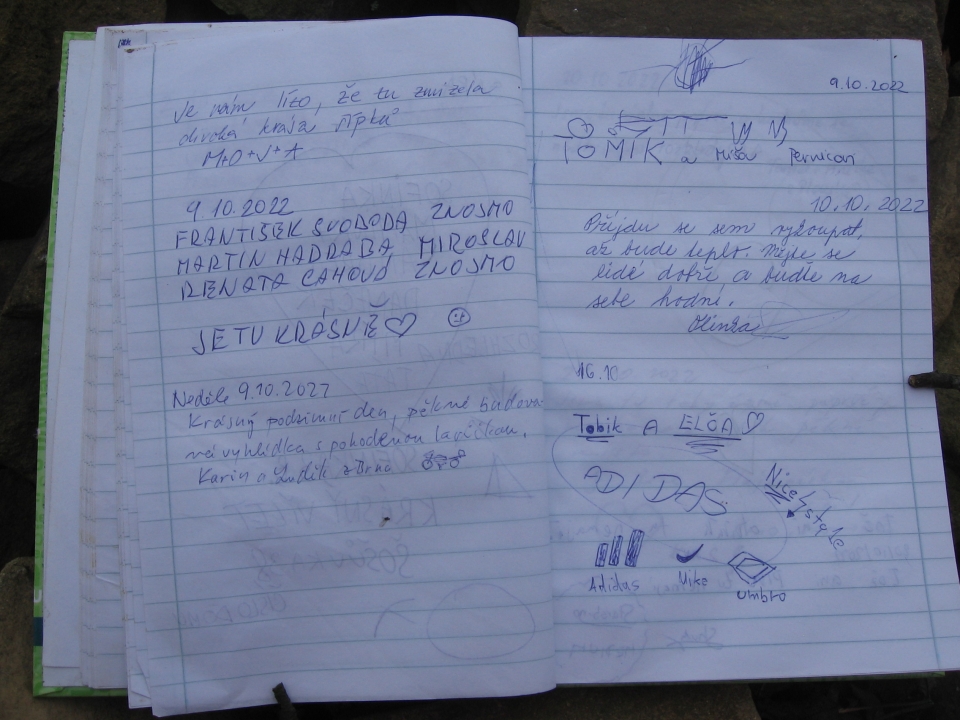 Je nám líto, že tu zmizela
divoká krása
M+O+J+A
9.10.2022
FRANTIŠEK SVOBODA ZNOJMO
MARTIN HADRABA, MIROSLAV
RENATA CAHOVÁ ZNOJMO
JE TU KRÁSNĚ
Neděle 9.10.2022
Krásný podzimní den, pěkně budova-
ná vyhlídka s pohodlnou lavičkou.
Karin a Luděk z Brna
9.10.2022
TOMIK a Míša Pernicar
10.10.2022
Přijdu se sem vykoupat,
až bude teplo. Mějte se
lidé dobře a buďte na
sebe hodní.
16.10
Tobik A ELČA
ADIDAS
Nice style
Adidas Nike umbro